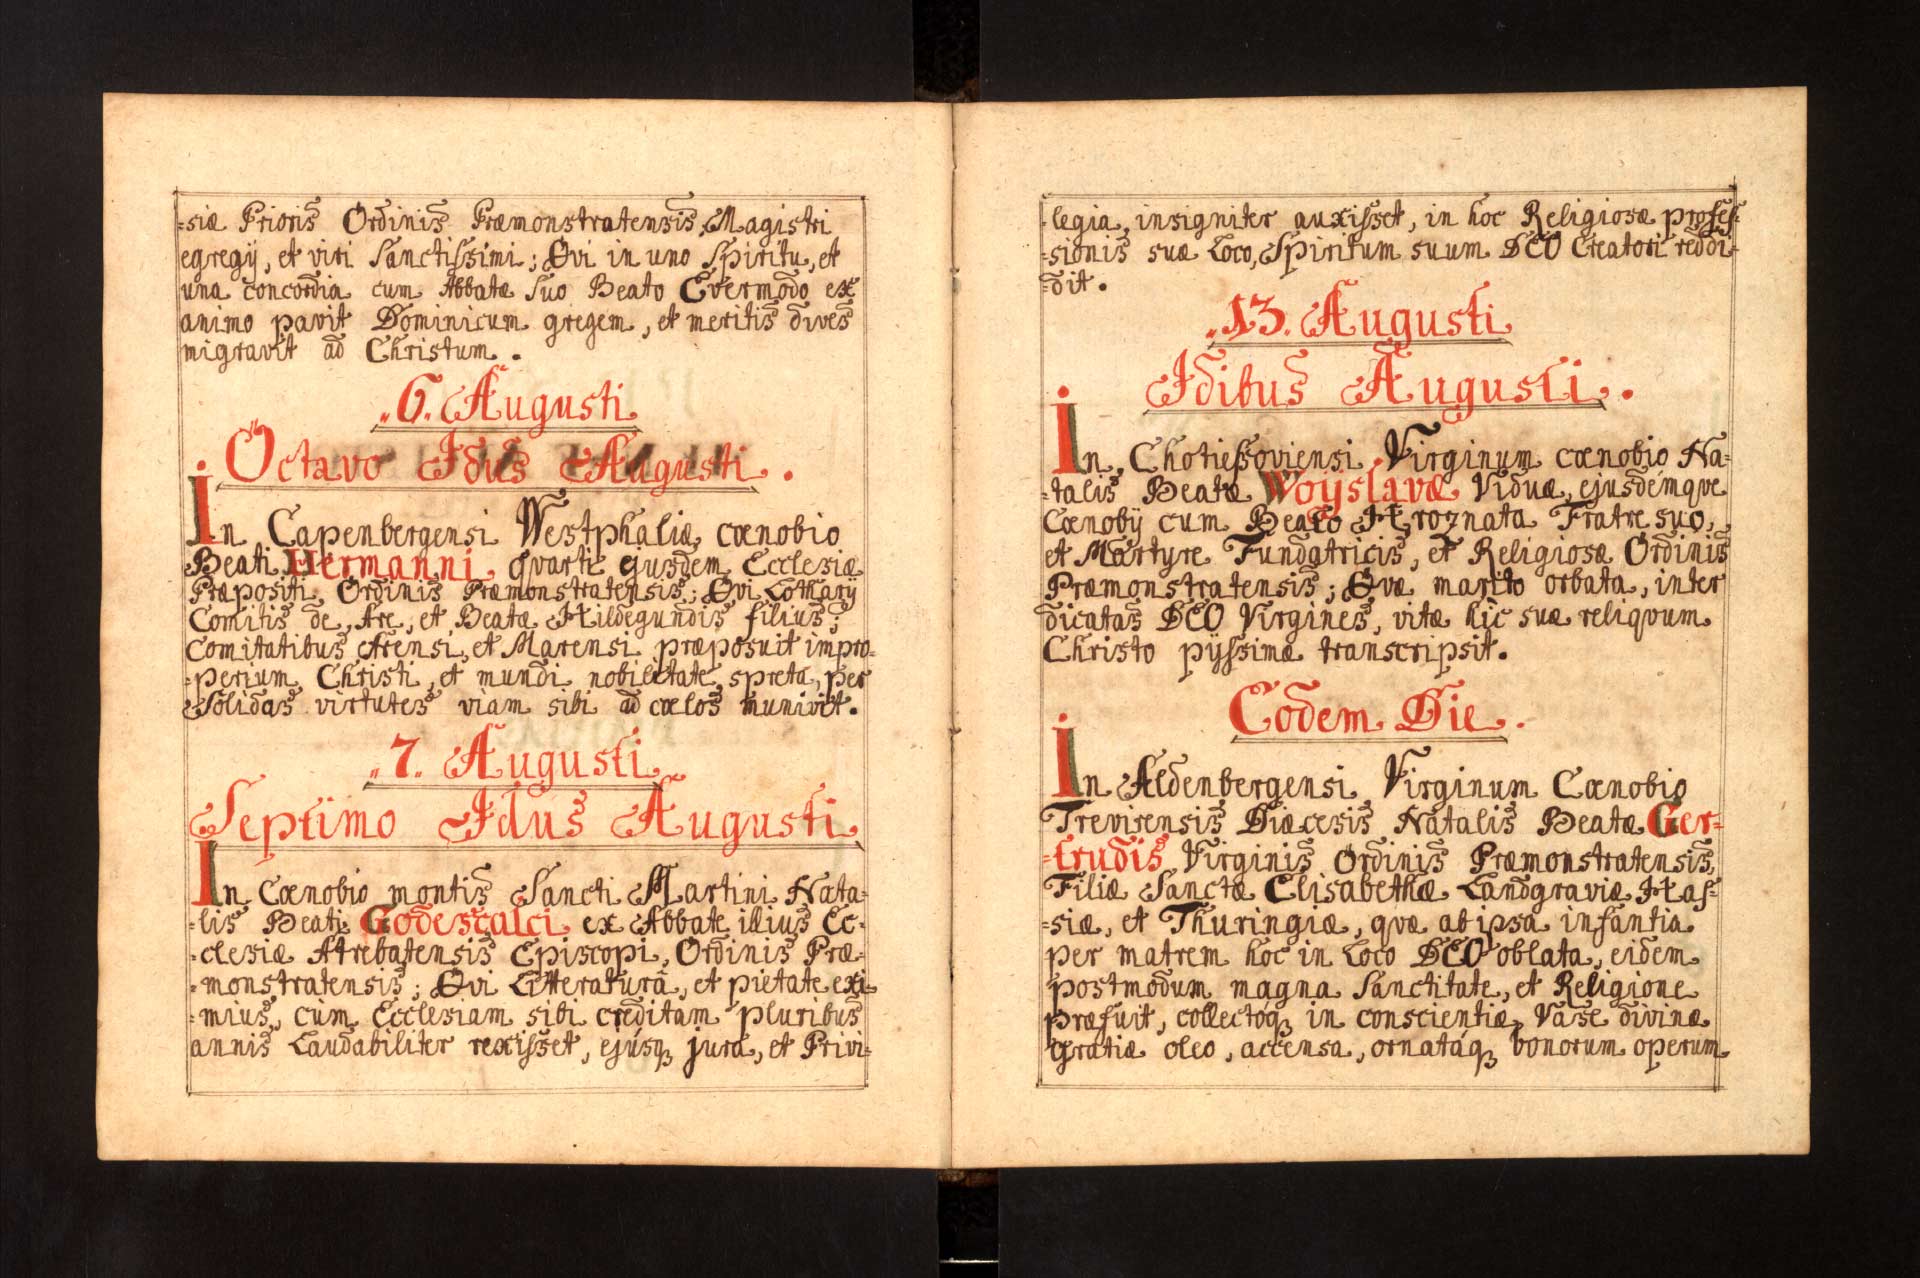 -siæ Prioris Ordinis Præmonstratensis, Magistri
egregij, et viri Sanctissimi; Qvi in uno Spiritu, et
una concordia cum Abbate suo Beato Evermodo ex
animo pavit Dominicum gregem, et meritis dives
migravit ad Christum.
„6. Augusti
Octavo Idus Augusti.
In Capenbergensi Westphaliæ cœnobio
Beati Hermanni qvarti ejusdem Ecclesiæ
Præpositi Ordinis Præmonstratensis; Qvi Lotharij
Comitis de Are, et Beatæ Hildegundis filius;
Comitatibus Arensi, et Marensi præposuit impro-
-perium Christi, et mundi nobilitate spreta, per
Solidas virtutes viam sibi ad cœlos munivit.
„7. Augusti
Septimo Idus Augusti
In Cœnobio montis Sancti Martini Nata-
-lis Beati Godescalci ex Abbate illius Ec-
-clesiæ Atrebatensis Episcopi, Ordinis Præ-
-monstratensis; Qvi Litteraturâ, et pietate exi-
-mius, cum Ecclesiam sibi creditam pluribus
annis Laudabiliter rexisset, ejúsq jura, et Privi-
-legia, insigniter auxisset, in hoc Religiosæ profes-
-sionis suæ Loco, Spiritum suum DEO Creatori reddi-
-dit.
„13. Augusti
Idibus Augusti.
In Chotiessoviensi Virginum cœnobio Na-
-talis Beatæ Woyslavæ Viduæ, ejusdemqve
Cœnobij cum Beato Hroznata Fratre suo,
et Martyre Fundatricis, et Religiosæ Ordinis
Præmonstratensis; Qvæ marito orbata, inter
dicatas DEO Virgines, vitæ hic suæ reliqvum
Christo pijssimæ transcripsit.
Eodem Die.
In Aldenbergensi Virginum Cœnobio
Trevirensis Diæcesis Natalis Beatæ Ger-
-trudis Virginis Ordinis Præmonstratensis,
Filiæ Sanctæ Elisabethæ Landgraviæ Has-
-siæ, et Thuringiæ, qvæ ab ipsa infantia
per matrem hoc in Loco DEO oblata, eidem
postmodum magna Sanctitate, et Religione
præfuit, collectoq in conscientiæ Vase divinæ
gratiæ oleo, accensa, ornatáq bonorum operum